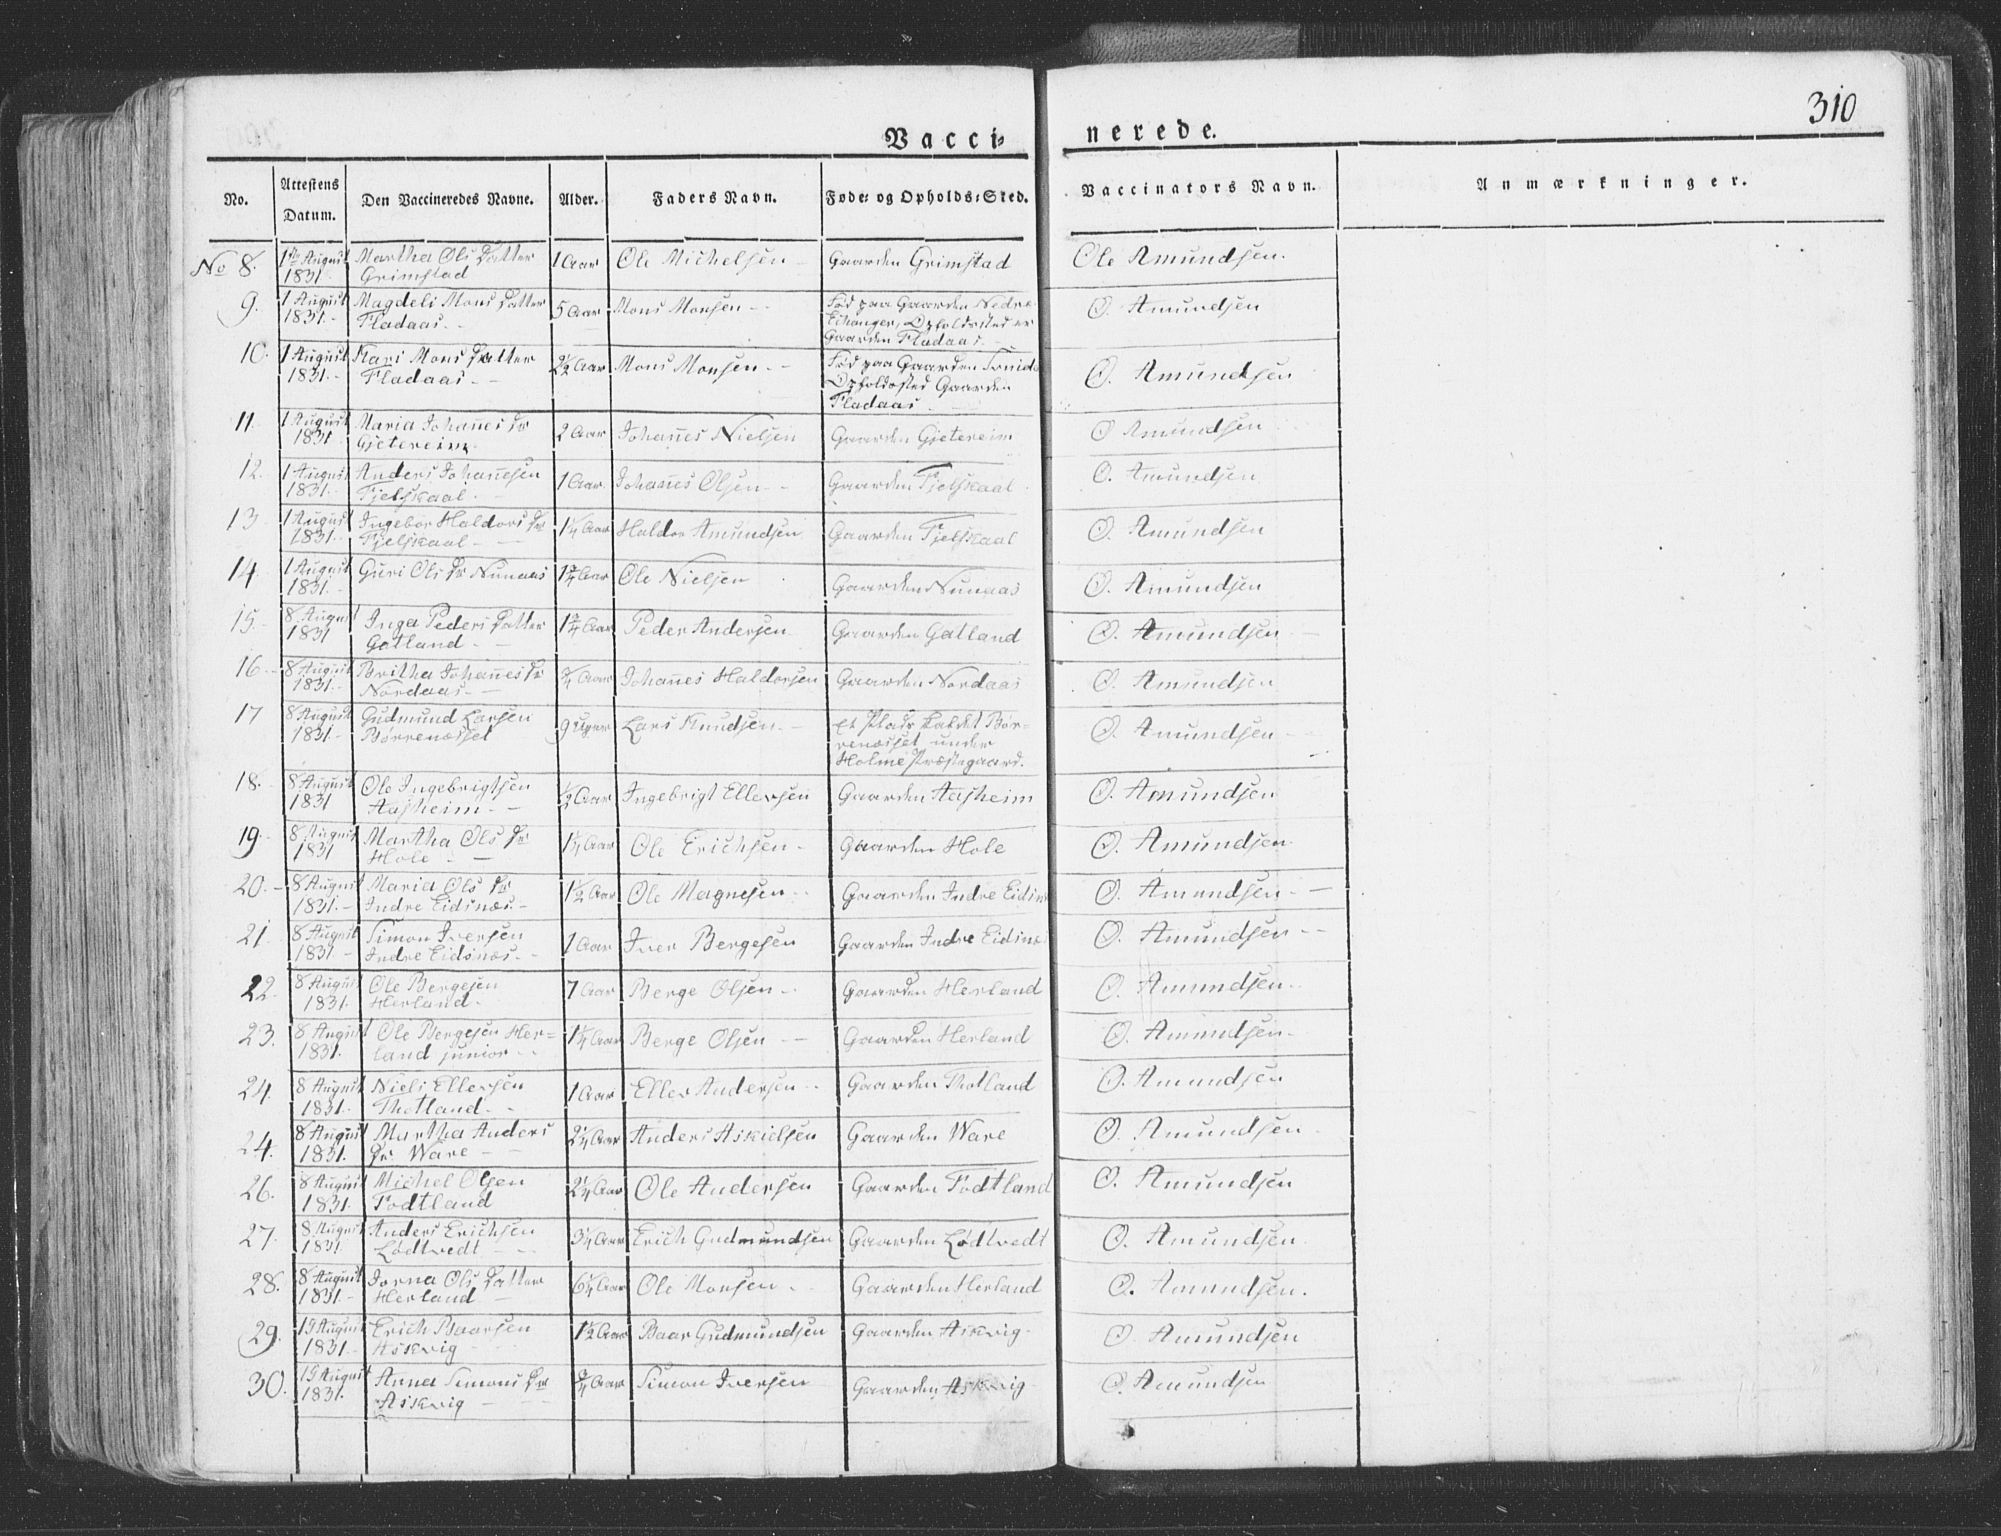 310
Vacci-
nerede.
No. Attestens Datum. Den Vaccineredes Navne. Alder. Faders Navn. Føde- og Opholds-Sted. Vaccinators Navn. Anmærkninger.
No 8. 1 August Martha Ols Datter 1 Aar Ole Michelsen Gaarden Grimstad Ole Amundsen.
1831 Grimstad
9. 1 August Magdeli Mons Datter 5 Aar Mons Monsen Fød paa Gaarden Nedre O. Amundsen
1831. Fladaas Eikanger, Opholdssted er
Gaarden Fladaas
10. 1 August Kari Mons Datter 2½ Aar Mons Monsen Fød paa Gaarden O. Amundsen
1831. Fladaas Opholdssted Gaarden
Fladaas
11. 1 August Maria Johannes Dr 2 Aar Johannes Nielsen Gaarden Gjetereim O Amundsen
1831 Gjetereim
12. 1 August Anders Johannesen 1 Aar Johannes Olsen Gaarden Fjelskaal O. Amundsen
1831. Fjelskaal
13 1 August Ingebor Haldors Dr 1¼ Aar Haldor Amundsen Gaarden Fjelskaal O. Amundsen
1831. Fjelskaal
14 1 August Guri Ols Dr Nunaas 1¾ Aar Ole Nielsen Gaarden Nunaas O. Amundsen
1831.
15. 8 August Inga Peders Datter 1¾ Aar Peder Andersen Gaarden Gatland O. Amundsen
1831 Gatland
16 8 August Britha Johannes Dr ¾ Aar Johannes Haldorsen Gaarden Nordaas O. Amundsen
1831. Nordaas
17 8 August Gudmund Larsen 9 Uger Lars Knudsen Et Plads kaldet Bør- O. Amundsen
1831. Børrenæsset renæsset under
Holme Præstegaard.
18. 8 August Ole Ingebrigtsen ½ Aar Ingebrigt Ellersen Gaarden Aasheim O. Amundsen
1831 Aasheim
19. 8 August Martha Ols Dr 1¼ Aar Ole Erichsen Gaarden Hole O. Amundsen
1831 Hole
20. 8 August Maria Ols Dr 1½ Aar Ole Magnesen Gaarden Indre O. Amundsen
1831. Indre Eidsnæs
21. 8 August Simon Iversen 1 Aar Iver Bergesen Gaarden Indre O. Amundsen
1831. Indre Eidsnæs
22. 8 August Ole Bergesen 7 Aar Berge Olsen Gaarden Herland O. Amundsen
1831. Herland
23. 8 August Ole Bergesen Her- 1¼ Aar Berge Olsen Gaarden Herland O. Amundsen
1831. land junior
24. 8 August Niels Ellersen 1 Aar Eller Andersen Gaarden Thotland O. Amundsen
1831. Thotland
24. 8 August Martha Anders 2¼ Aar Anders Askielsen Gaarden Ware O. Amundsen
1831. Dr Ware
26. 8 August Michel Olsen 2¼ Aar Ole Andersen Gaarden Fodtland O. Amundsen
1831. Fodtland
27. 8 August Anders Erichsen 3¼ Aar Erich Gudmundsen Gaarden Lødtvedt O. Amundsen
1831 Lødtvedt
28. 8 August Jorna Ols Datter 6¼ Aar Ole Monsen Gaarden Herland O. Amundsen.
1831. Herland
29. 15 August Erich Baarsen 1½ Aar Baar Gudmundsen Gaarden Askvig O. Amundsen
1831. Askvig
30. 15 August Anna Simons Dr ¾ Aar Simon Iversen Gaarden Askvig O. Amundsen
1831. Askvig